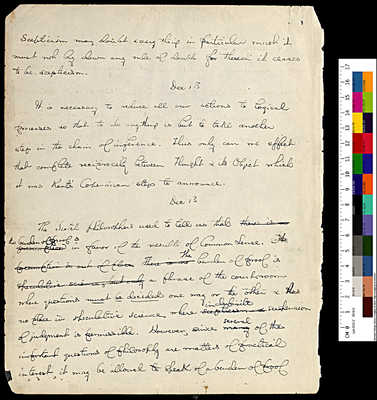 Scepticism may doubt every thing in particular much it
must not lay down any rule of doubts for therein it ceases
to be scepticism.
Dec 13
It is necessary to reduce all our actions to logical
processes so that to do anything is but to take another
step in the chain of inference. Thus only can we effect
that complete reciprocity between Thought & its Object which
it was Kant's Copernican step to announce.
Dec 13
The Scotch philosophers used to tell us that there is a
the burden of proof is
in favor of the results of Common Sense. The
burden of proof is
a phrase of the courtroom
where questions must be decided one way or the other & has
no place in speculative science, where indefinite suspension
of judgment is permissible. However, since several of the
important questions of philosophy are matters of practical
interest it may be allowed to speak of a burden of proof